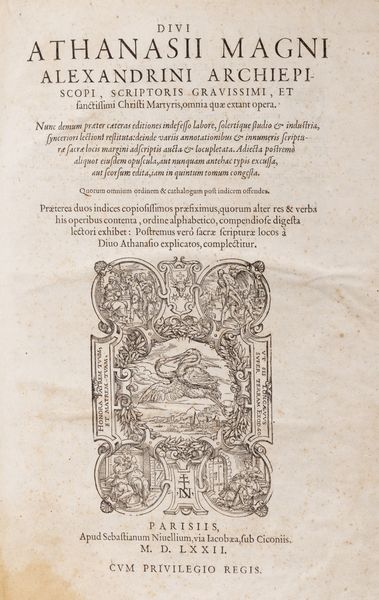 DIVI
ATHANASII MAGNI
ALEXANDRINI ARCHIEPI-
SCOPI, SCRIPTORIS GRAVISSIMI, ET
sanctissimi Christi Martyris, omnia quæ extant opera.
Nunc demum præter cæteras editiones indefesso labore, solertique studio & industria,
synceriori lectioni restituta: deinde variis annotationibus & innumeris scriptu-
ræ sacræ locis margini adscriptis aucta & locupletata. Adiecta postremò
aliquot eiusdem opuscula, aut nunquam antehac typis excussa,
aut seorsum edita, iam in quintum tomum congesta.
Quorum omnium ordinem & cathalogum post indicem offendes.
Præterea duos indices copiosissimos præfiximus, quorum alter res & verba
his operibus contenta, ordine alphabetico, compendiose digesta
lectori exhibet: Postremus verò sacræ scripturæ locos à
Diuo Athanasio explicatos, complectitur.
HONORA PATREM TVVM,
ET MATREM TVAM.
VT SIS LONGÆVVS
SVPER TERRAM.
PARISIIS,
Apud Sebastianum Niuellium, via Iacobæa, sub Ciconiis.
M. D. LXXII.
CVM PRIVILEGIO REGIS.